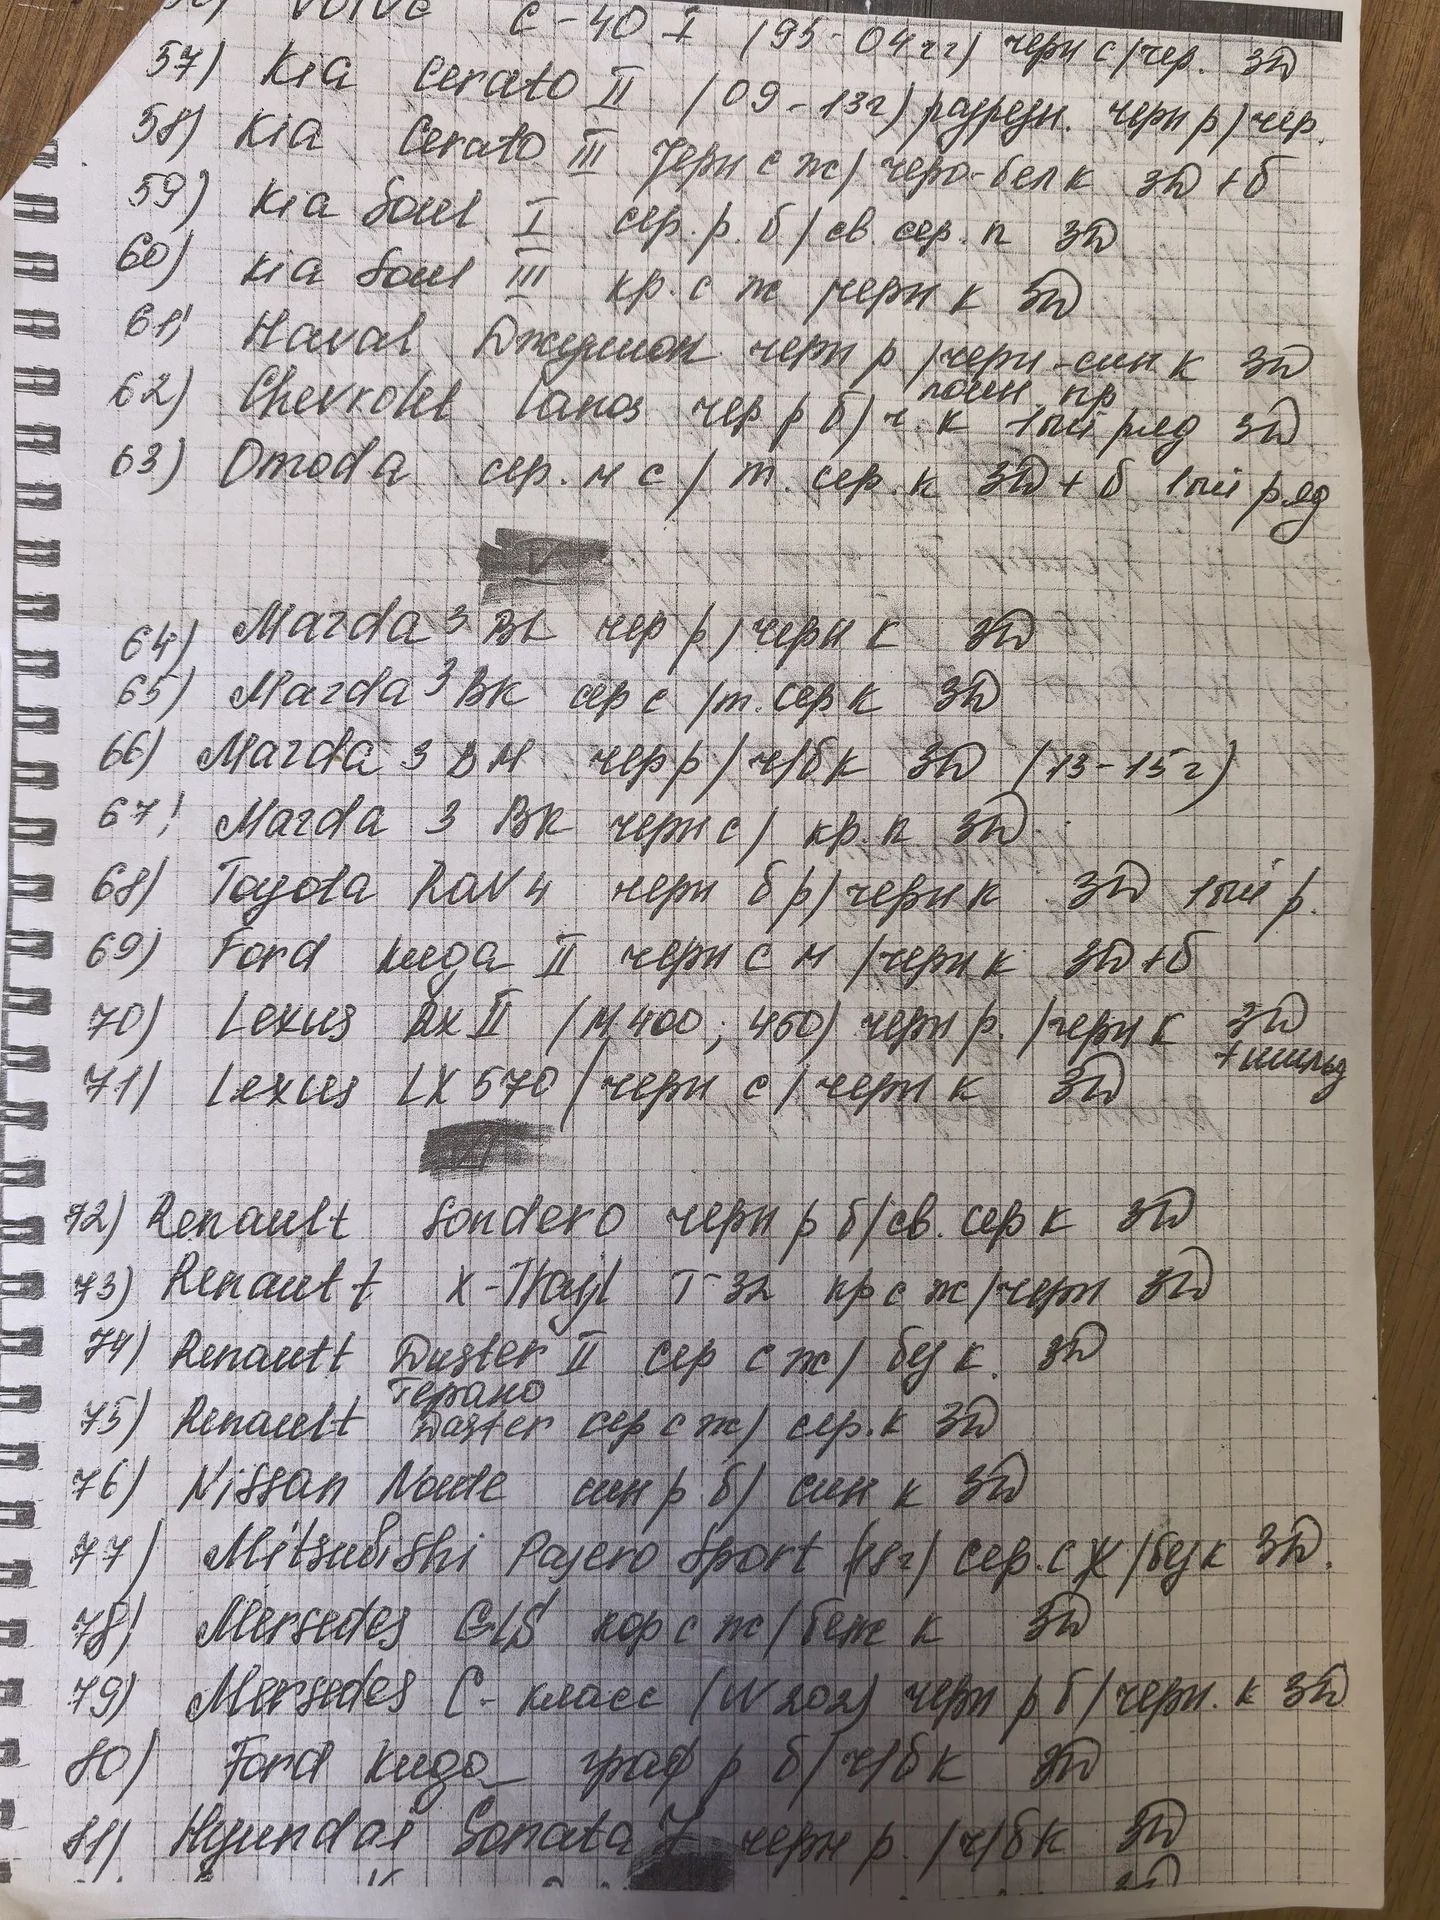 C-40 I (95-04гг) черн с/чер. 3D
57) Kia Cerato II (09-13г) разрезн. черн р/чер.
58) Kia Cerato III черн с ж/черо-бел к 3D+б
59) Kia Soul I сер. р. б/св. сер. к 3D
60) Kia Soul III кр. с ж/черн к 3D
61) Haval Джулион черн р/черн-син к 3D
62) Chevrolet Lanos чер р б/ч. к 1ый ряд 3D
63) Omoda сер. м с/т. сер. к 3D+б 1ый ряд
V
64) Mazda 3 BL чер р/черн к 3D
65) Mazda 3 BK сер с/т. сер к 3D
66) Mazda 3 BM черр/ч/б к 3D (13-15г)
67) Mazda 3 BK черн с/кр. к 3D
68) Toyota RaV4 черн б р/черн к 3D 1ый р.
69) Ford Kuga II черн с м/черн к 3D+б
70) Lexus RX II (М 400; 450) черн р./черн к 3D
+шильд
71) Lexus LX 570/черн с/черн к 3D
72) Renault Sondero черн р б/св. сер к 3D
73) Renault X-Trayl T 32 кр с ж/черн 3D
74) Renautt Duster II сер с ж/беж к. 3D
Терано
75) Renault Daster сер с ж/сер. к 3D
76) Nissan Noute син р б/син к 3D
77) Mitsubishi Pajero Sport (18г) сер. с ж/беж к 3D.
78) Mersedes GLS кор с ж/беж к 3D
79) Mersedes C-класс (W202) черн р б/черн. к 3D
80) Ford Kuga граф р б/ч/б к 3D
81) Hyundai Sonata 7 черн р./ч/б к 3D